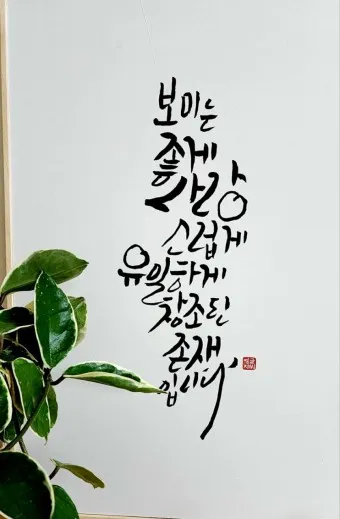 보미는
좋게
사랑
스럽게
유일하게
창조된
존재
입니다